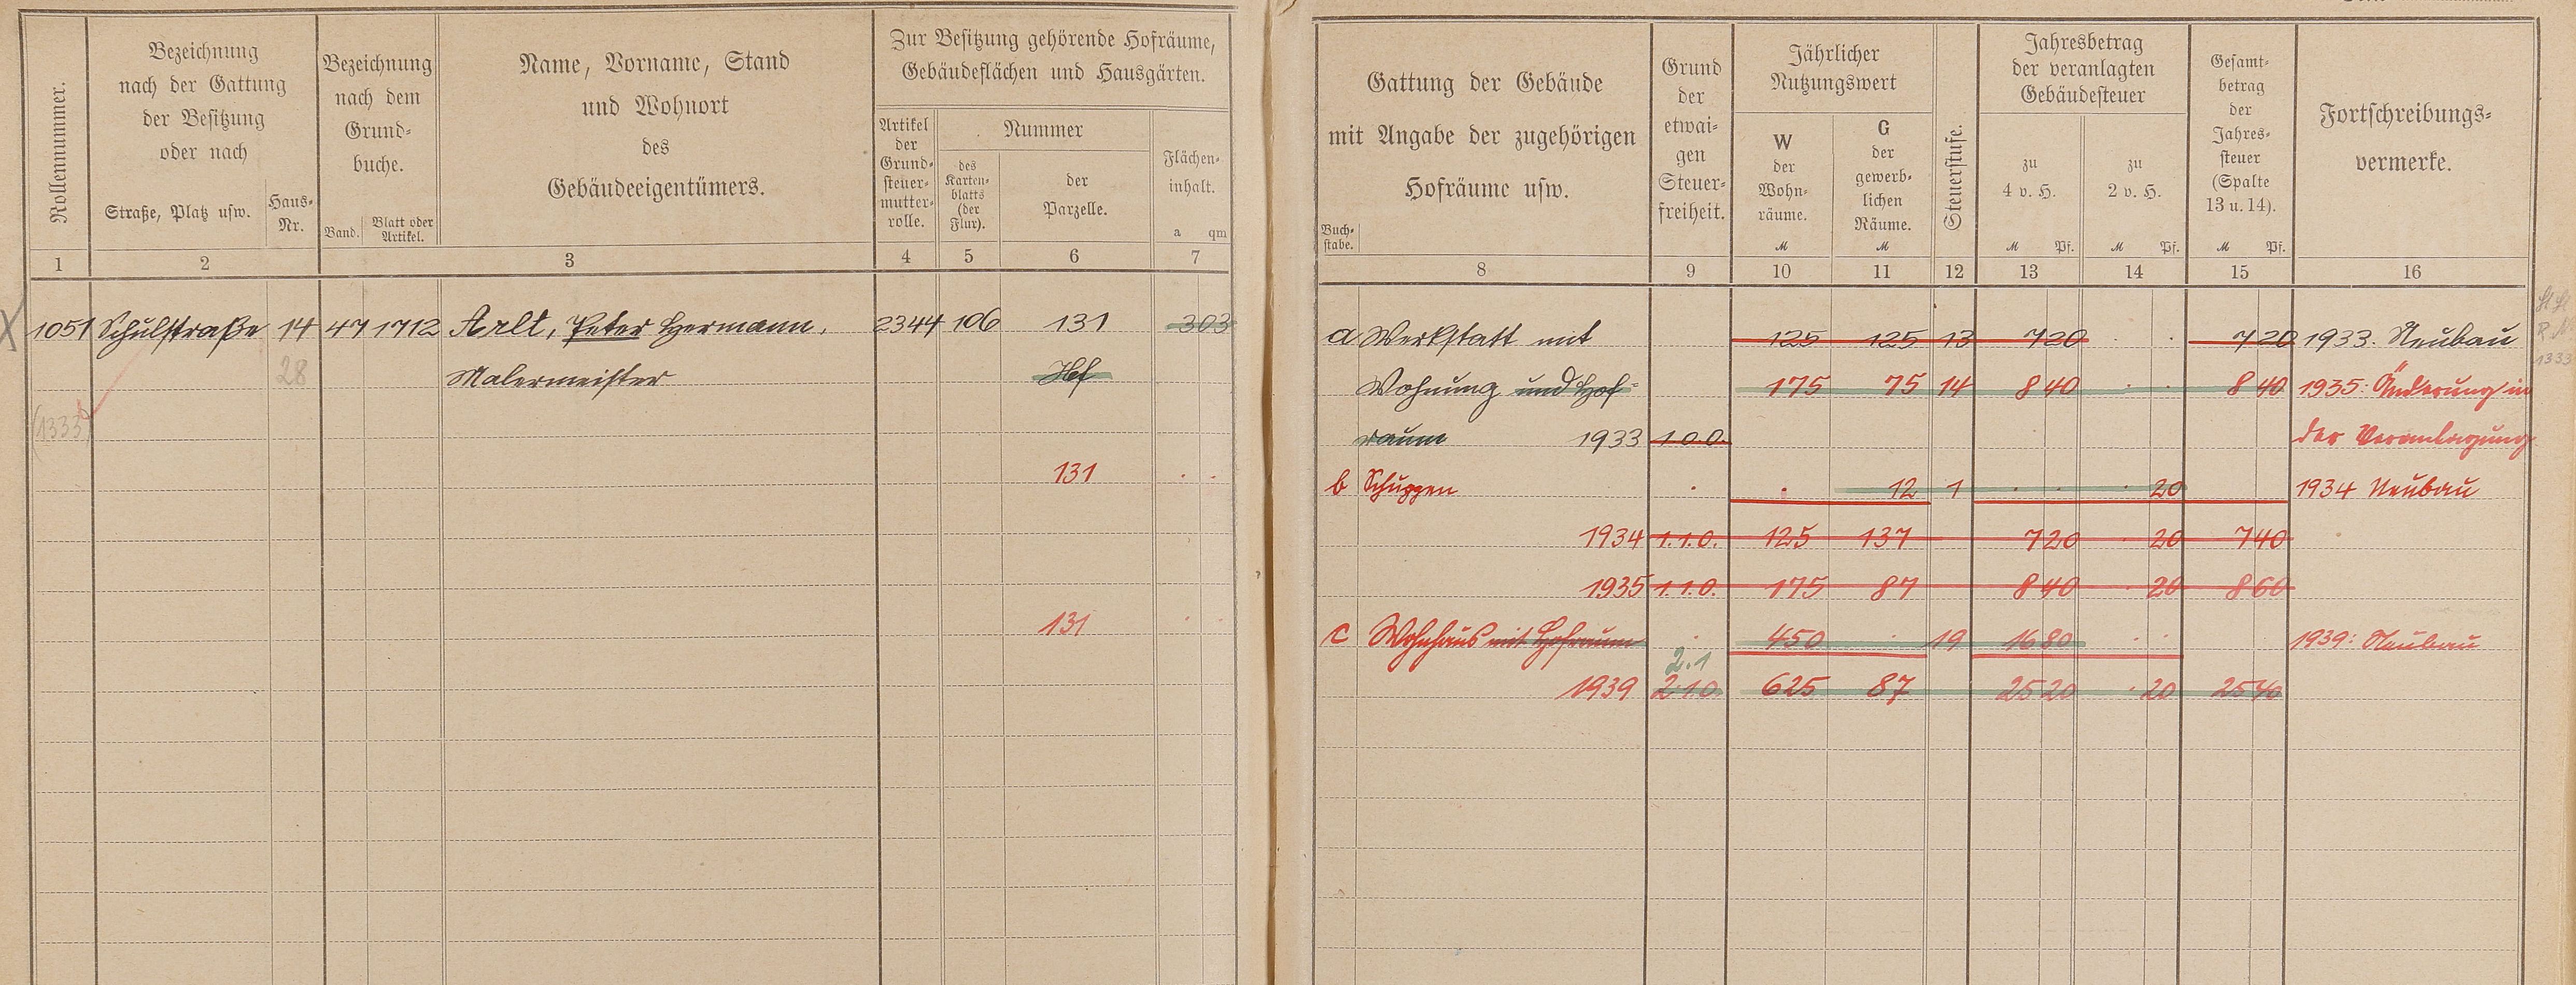 Rollennummer.
Bezeichnung
nach der Gattung
der Besitzung
oder nach
Straße, Platz usw.
Haus-
Nr.
Bezeichnung
nach dem
Grund-
buche.
Band.
Blatt oder
Artikel.
Name, Vorname, Stand
und Wohnort
des
Gebäudeeigentümers.
Zur Besitzung gehörende Hofräume,
Gebäudeflächen und Hausgärten.
Artikel
der
Grund-
steuer-
mutter-
rolle.
Nummer
des
Karten-
blatts
(der
Flur).
der
Parzelle.
Flächen-
inhalt.
a qm
1 2 3 4 5 6 7
1051 Schulstraße 14 47 1712 Arlt, Peter Hermann, 2344 106 131 303
28 Malermeister Hf
(1333)
131 . .
131 . .
Gattung der Gebäude
mit Angabe der zugehörigen
Hofräume usw.
Buch-
stabe.
Grund
der
etwai-
gen
Steuer-
freiheit.
Jährlicher
Nutzungswert
W
der
Wohn-
räume.
M
G
der
gewerb-
lichen
Räume.
M
Steuerstufe.
Jahresbetrag
der veranlagten
Gebäudesteuer
zu
4 v. H.
M Pf.
zu
2 v. H.
M Pf.
Gesamt-
betrag
der
Jahres-
steuer
(Spalte
13 u. 14).
M Pf.
Fortschreibungs-
vermerke.
8 9 10 11 12 13 14 15 16
a Werkstatt mit 125 125 13 7 20 . . 7 20 1933. Neubau
Wohnung und Hof- 175 75 14 8 40 . . 8 40 1935: Änderung in
raum 1933 1.0.0. der Veranlagung
b Schuppen . . 12 1 . . . 20 1934 Neubau
1934 1.1.0. 125 137 7 20 . 20 7 40
1935 1.1.0. 175 87 8 40 . 20 8 60
c Wohnhaus mit Hofraum . 450 . 19 16 80 . . 1939: Neubau
2.1
1939 2.1.0 625 87 25 20 . 20 25 40
1333